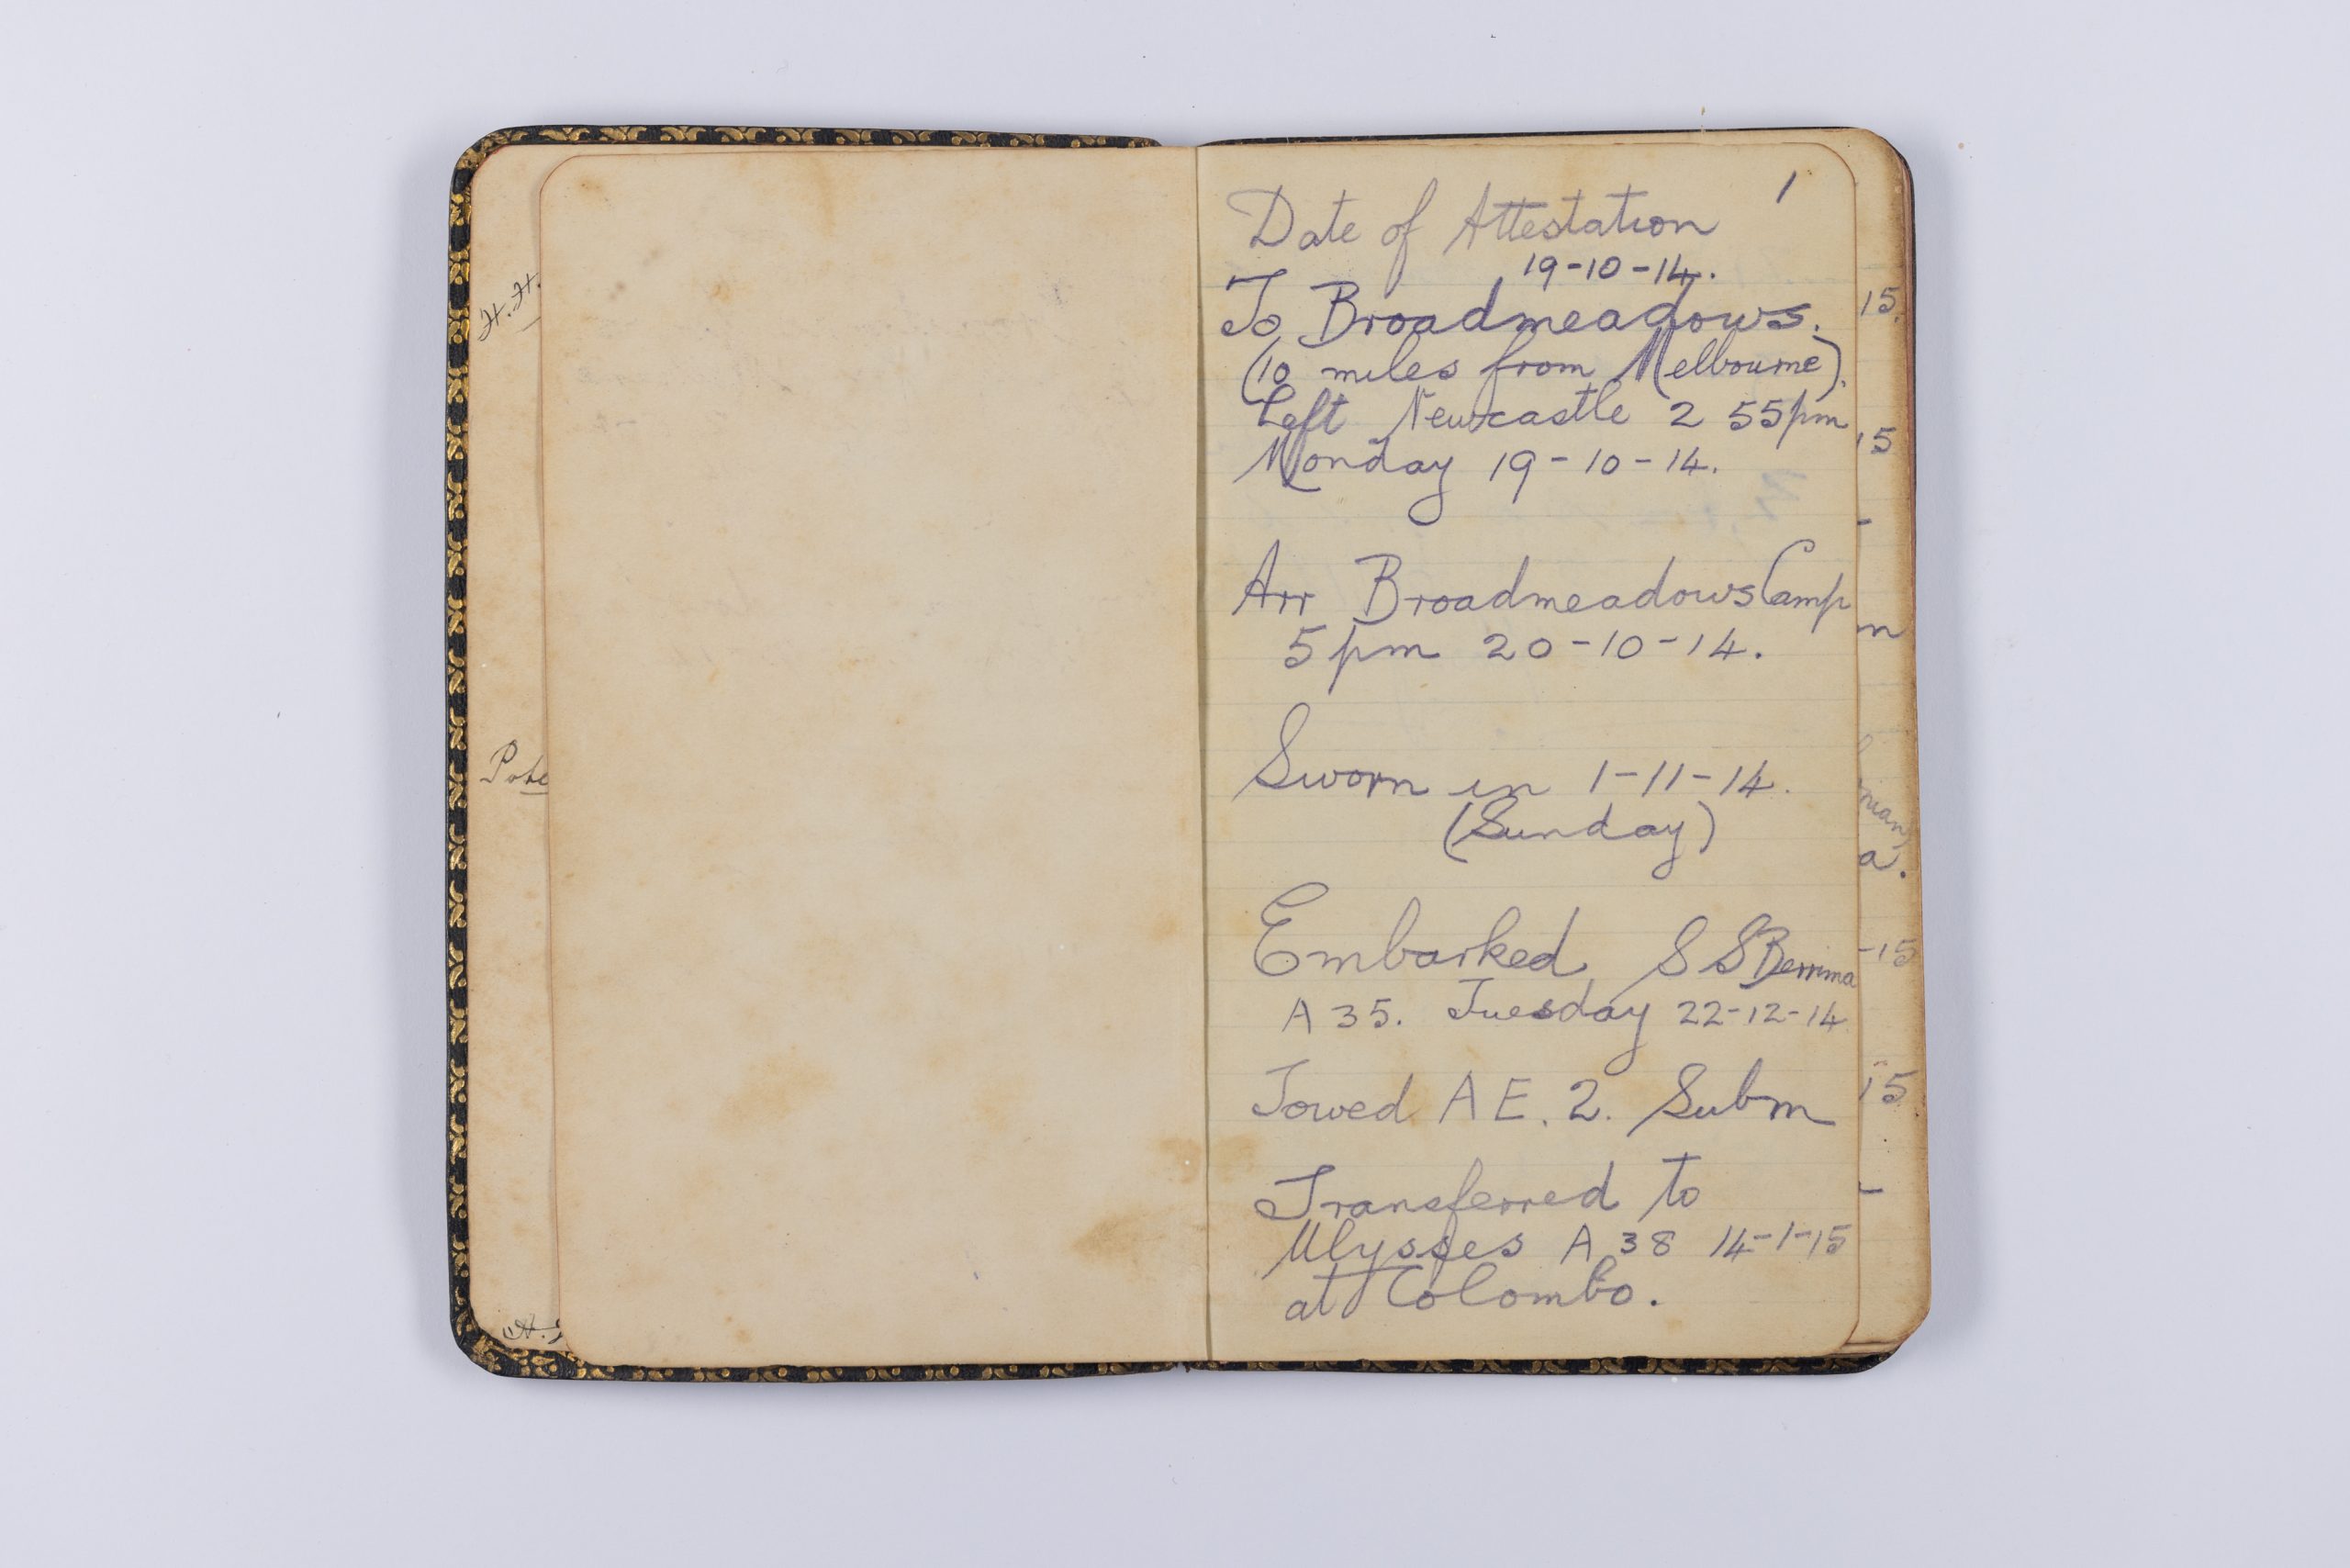 H.H.
1
Date of Attestation
19-10-14.
To Broadmeadows.
(10 miles from Melbourne).
Left Newcastle 2 55pm
Monday 19-10-14.
Arr Broadmeadows Camp
5pm 20-10-14.
Sworn in 1-11-14.
(Sunday)
Embarked S S Berrima
A 35. Tuesday 22-12-14
Towed A E. 2. Subm
Transferred to
Ulysses A 38 14-1-15
at Colombo.
15.
15
-
m
a.
-15
15